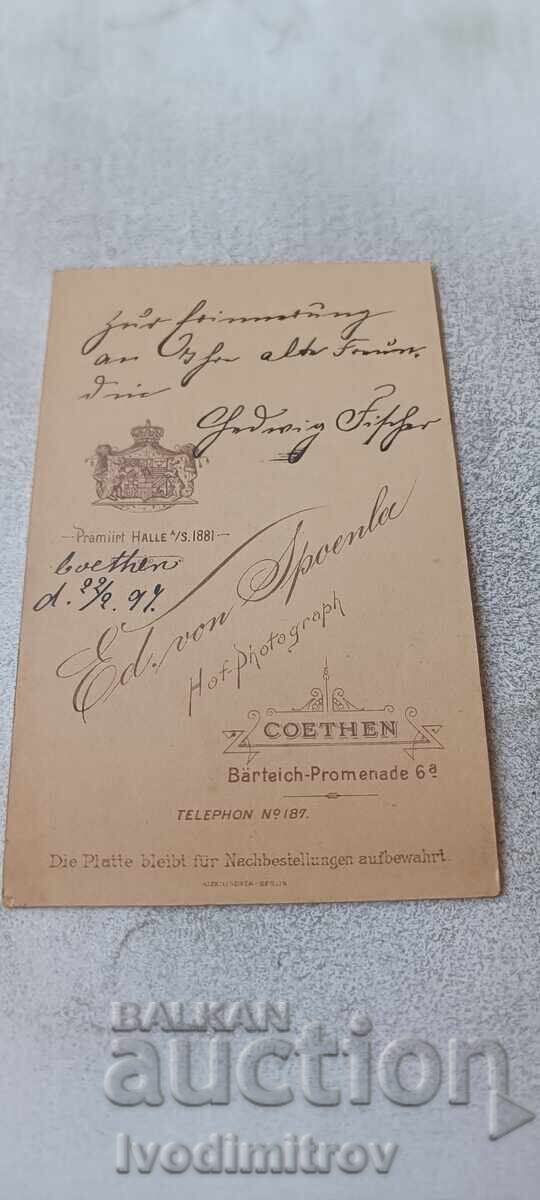 Zur Erinnerung
an Ihre alte Freun-
din
Hedwig Fischer
Prämiirt HALLE A/S. 1881
Coethen
d. 22/2. 97.
Ed. von Spoenla
Hof-Photograph
COETHEN
Bärteich-Promenade 6a
TELEPHON No 187.
Die Platte bleibt für Nachbestellungen aufbewahrt.
BALKAN
auction
Ivodimitrov